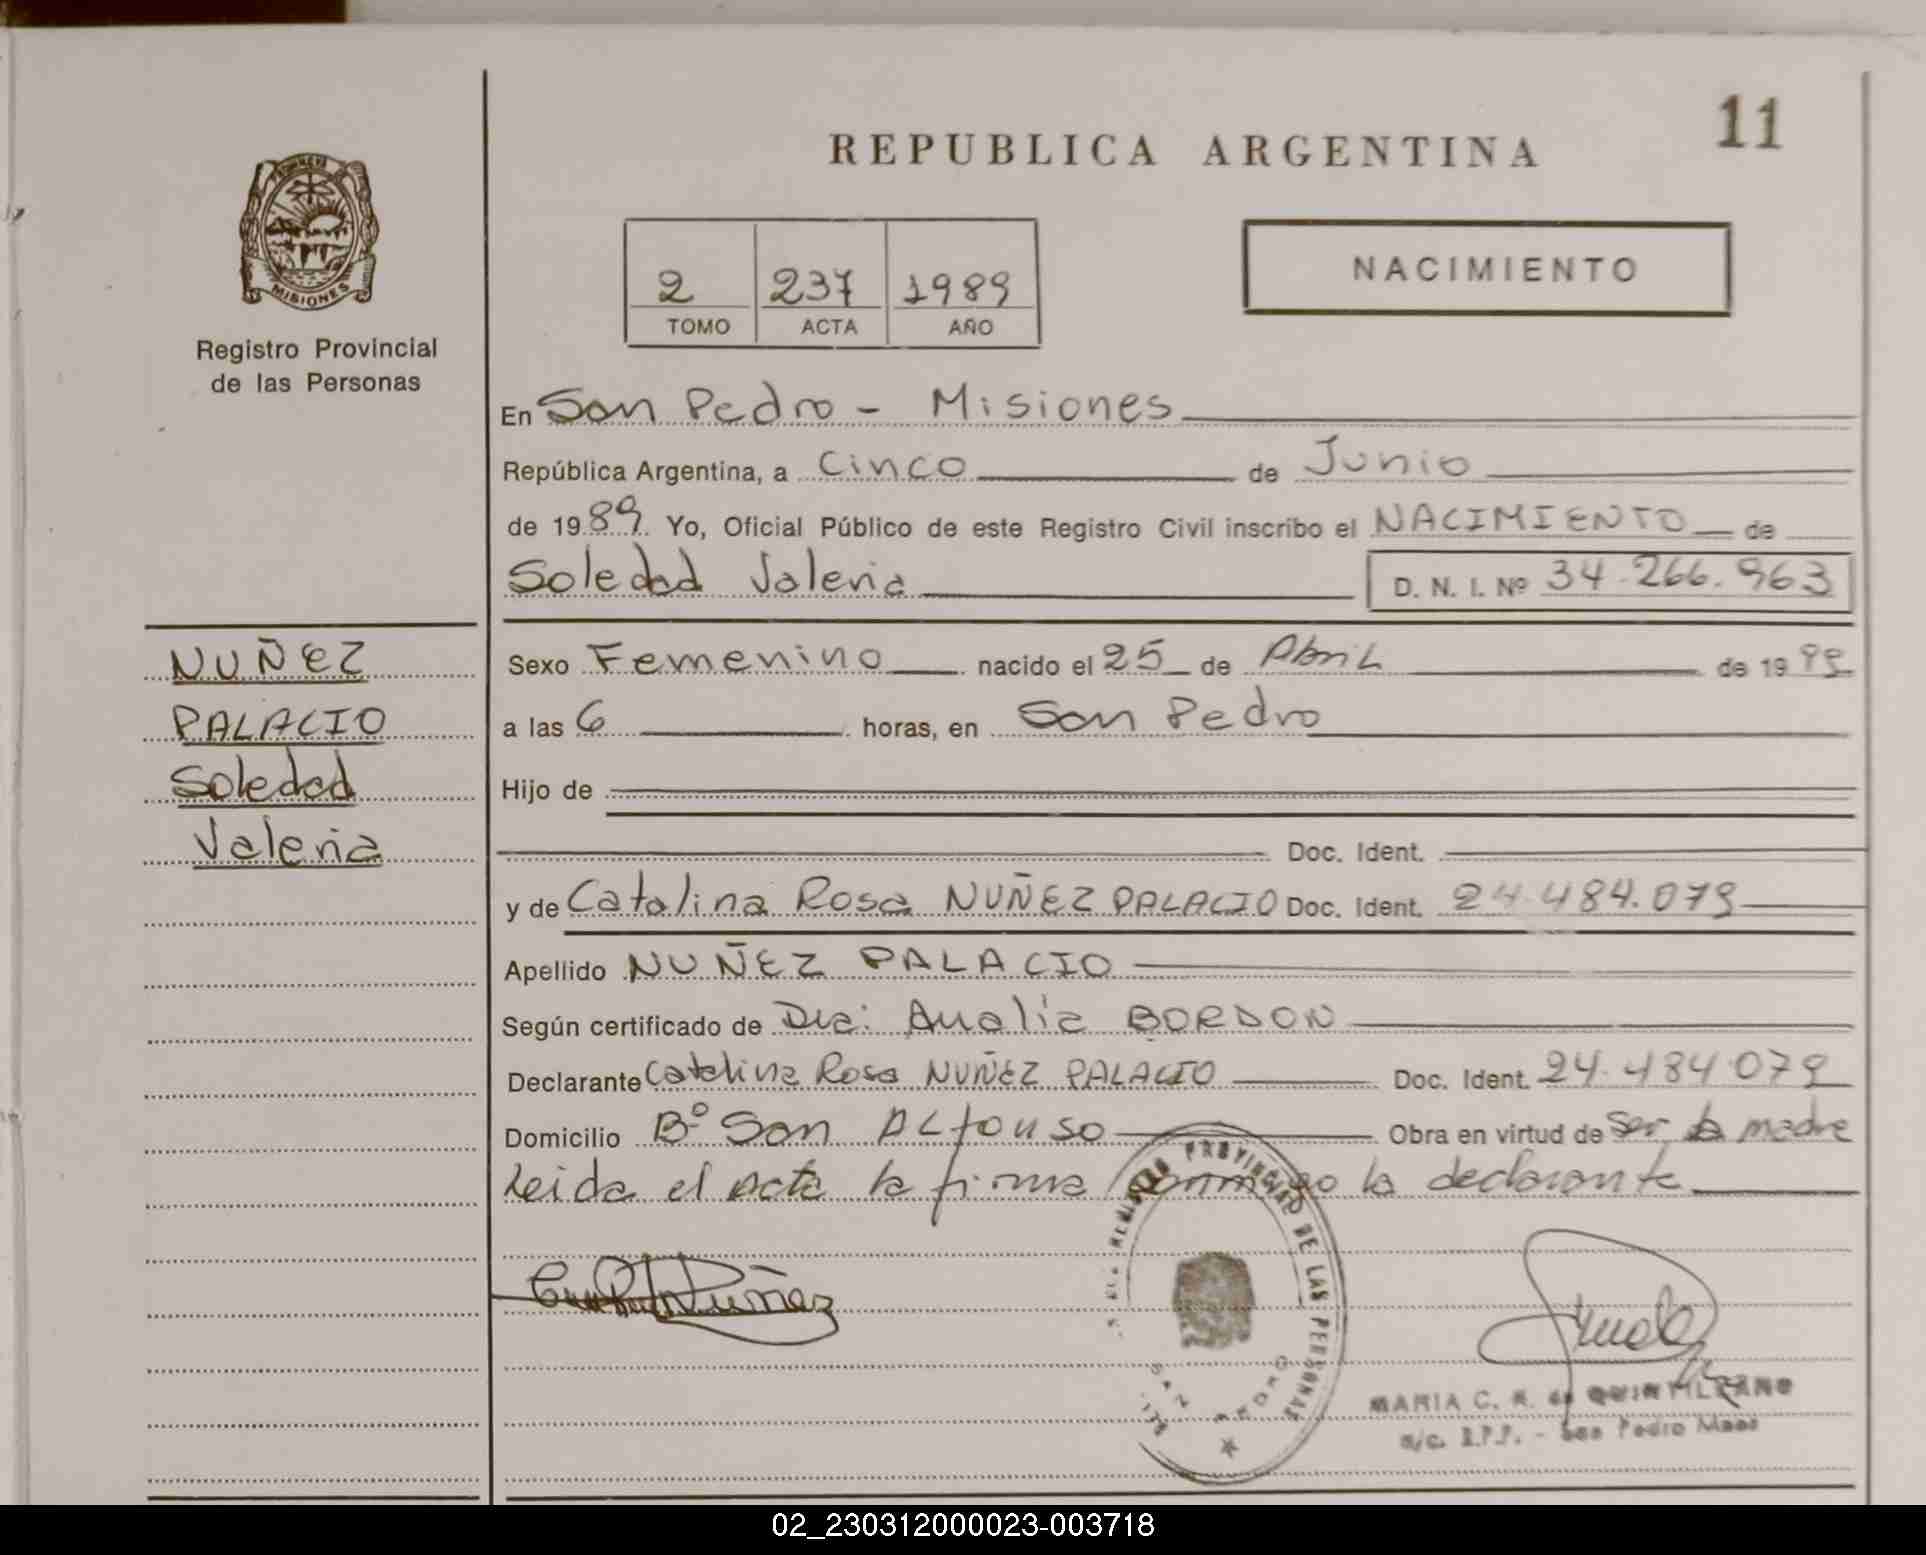 11
REPUBLICA ARGENTINA
MISIONES
Registro Provincial
de las Personas
2 237 1989
TOMO ACTA AÑO
NACIMIENTO
En San Pedro - Misiones
República Argentina, a Cinco de Junio
de 1989. Yo, Oficial Público de este Registro Civil inscribo el NACIMIENTO de
Soledad Valeria D. N. I. Nº 34.266.963
NUÑEZ
PALACIO
Soledad
Valeria
Sexo Femenino nacido el 25 de Abril de 1989
a las 6 horas, en San Pedro
Hijo de
Doc. Ident.
y de Catalina Rosa NUÑEZ PALACIO Doc. Ident. 24.484.079
Apellido NUÑEZ PALACIO
Según certificado de Dra: Analia BORDON
Declarante Catalina Rosa NUÑEZ PALACIO Doc. Ident. 24.484.079
Domicilio Bº San Alfonso Obra en virtud de Ser la madre
Leida el acta la firma conmigo la declarante
Nuñez
PROVINCIAL DE LAS PERSONAS
SAN PEDRO
MARIA C. R. de QUINTILIANO
a/c. R.P.P. - San Pedro Mnes
02_230312000023-003718